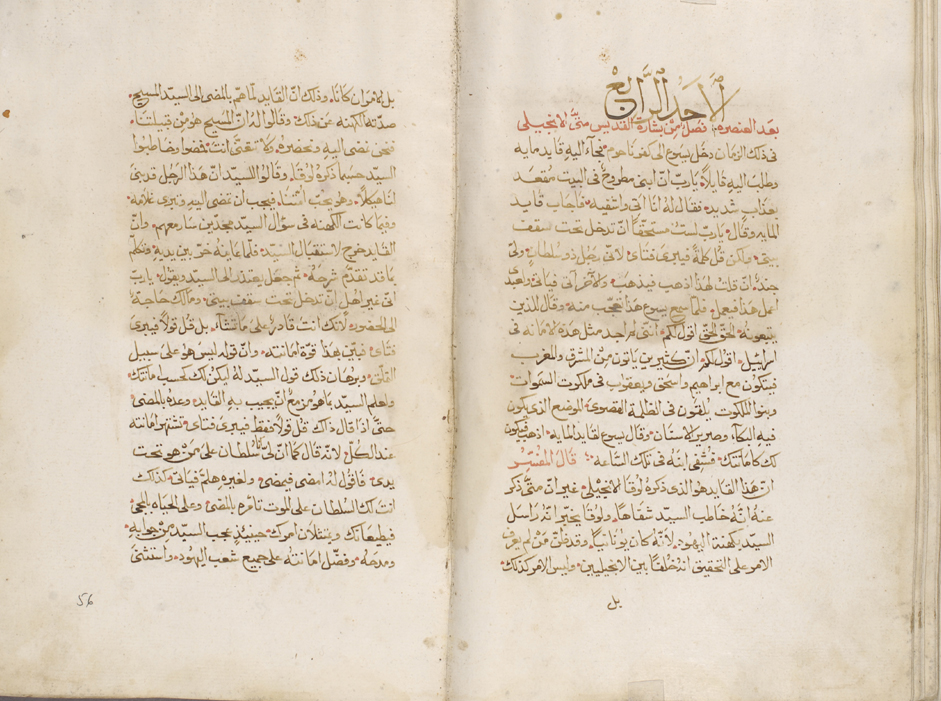 الاحد الرابع
بعد العنصره فصل من بشارة القديس متى الانجيلى
فى ذلك الزمان دخل يسوع الى كفرناحوم فجآء اليه قايد مايه
وطلب اليه قايلاً يا رب ان ابنى مطروح فى البيت مقعد
بعذاب شديد فقال له انا اتى واشفيه فاجاب قايد
المايه وقال يا رب لست مستحقاً ان تدخل تحت سقف
بيتى ولكن قل كلمة فيبرى فتاى لانى رجل ذو سلطان ولى
جند ان قلت لهذا اذهب فيذهب ولاخر اتى فياتى ولعبدى
اعمل هذا فيعمل فلما سمع يسوع هذا تعجب منه وقال للذين
يتبعونه الحق الحق اقول لكم اننى لم اجد مثل هذه الامانه فى
اسراييل اقول لكم ان كثيرين ياتون من المشرق والمغرب
فيتكون مع ابراهيم واسحق ويعقوب فى ملكوت السموات
وبنوا الملكوت يلقون فى الظلمة القصوى الموضع الذى يكون
فيه البكآء وصرير الاسنان وقال يسوع لقايد المايه اذهب فيكون
لك كامانتك فشفى ابنه فى تلك الساعه قال المفسر
ان هذا القايد هو الذى ذكره لوقا الانجيلى غير ان متى ذكر
عنه انه خاطب السيد شفاهاً ولوقا يخبر انه راسل
السيد بكهنة اليهود لانه كان يونانياً وقد ظن من لم يعرف
الامر على التحقيق ان خلفاً بين الانجيليين وليس الامر كذلك
بل
بل الامران كانا وذلك ان القايد لما هم بالمضى الى السيد المسيح
صدته الكهنه عن ذلك وقالوا له ان المسيح هو من قبيلتنا
فنحن نمضى اليه ونحضره ولا تتعنى انت فمضوا وخاطبوا
السيد حسبما ذكره لوقا وقالوا للسيد ان هذا الرجل قد بنى
لنا هيكلاً وهو يحب امتنا فيجب ان تمضى اليه وتبرى غلامه
وفيما كانت الكهنه فى سؤال السيد مجدين سار معهم وان
القايد خرج لاستقبال السيد فلما عاينه خر بين يديه وتكلم
بما قد تقدم شرحه ثم جعل يعتذر الى السيد ويقول يا رب
انى غير اهل ان تدخل تحت سقف بيتى وما لك حاجة
الى الحضور لانك انت قادر على ما تشآء بل قل قولاً فيبرى
فتاى فبين بهذا قوة امانته وان قوله ليس هو على سبيل
الملق وبرهان ذلك قول السيد له ليكن لك كحسب امانتك
واعلم السيد بما هو مزمع ان يجيب به القايد وعده بالمضى
حتى اذا قال ذلك قل قولاً فقط فيبرى فتاى تشتهر امانته
عند الكل لانه قال كما ان لى انا سلطان على من هو تحت
يدى فاقول لهذا امضى فيمضى ولغيره هلم فياتى كذلك
انت لك السلطان على الموت تامره بالمضى وعلى الحياه بالمجى
فيطيعانك ويمتثلان امرك حينيذ عجب السيد من جوابه
ومدحه وفضل امانته على جميع شعب اليهود واستثنى
56